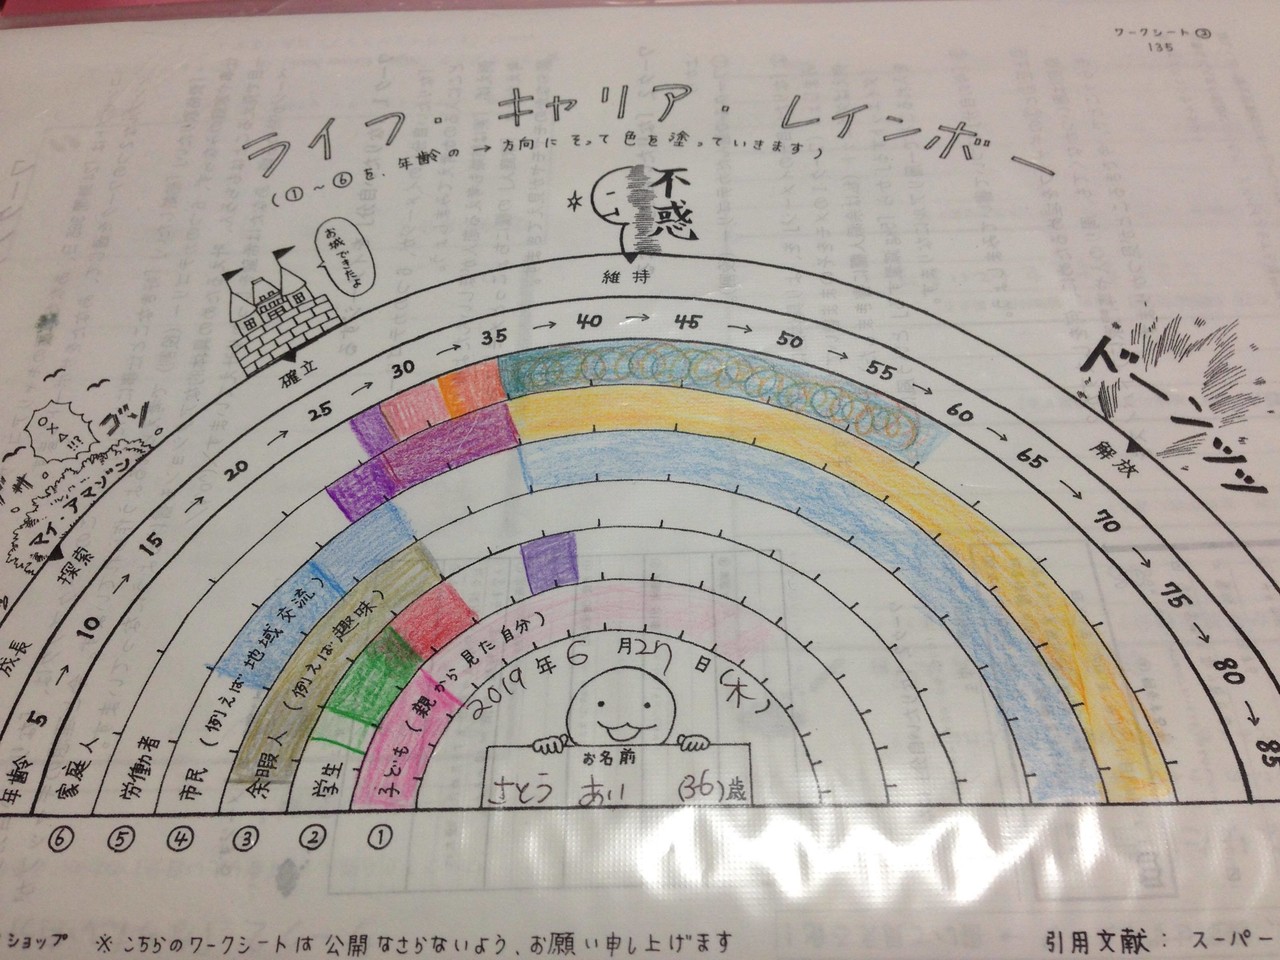 ワークシート②
135
ライフ・キャリア・レインボー
(①～⑥を、年齢の→方向にそって色を塗っていきます)
不惑
お城できたよ
維持
確立
ドーンッッ
解放
ゴソ
マイ・アマゾン
探索
成長
年齢 5 → 10 → 15 → 20 → 25 → 30 → 35 → 40 → 45 → 50 → 55 → 60 → 65 → 70 → 75 → 80 → 85
家庭人
労働者
市民 (例えば地域交流)
余暇人 (例えば趣味)
学生
子ども (親から見た自分)
2019年6月27日(木)
お名前
さとう あい (36)歳
⑥ ⑤ ④ ③ ② ①
ショップ ※こちらのワークシートは公開なさらないよう、お願い申し上げます
引用文献： スーパー